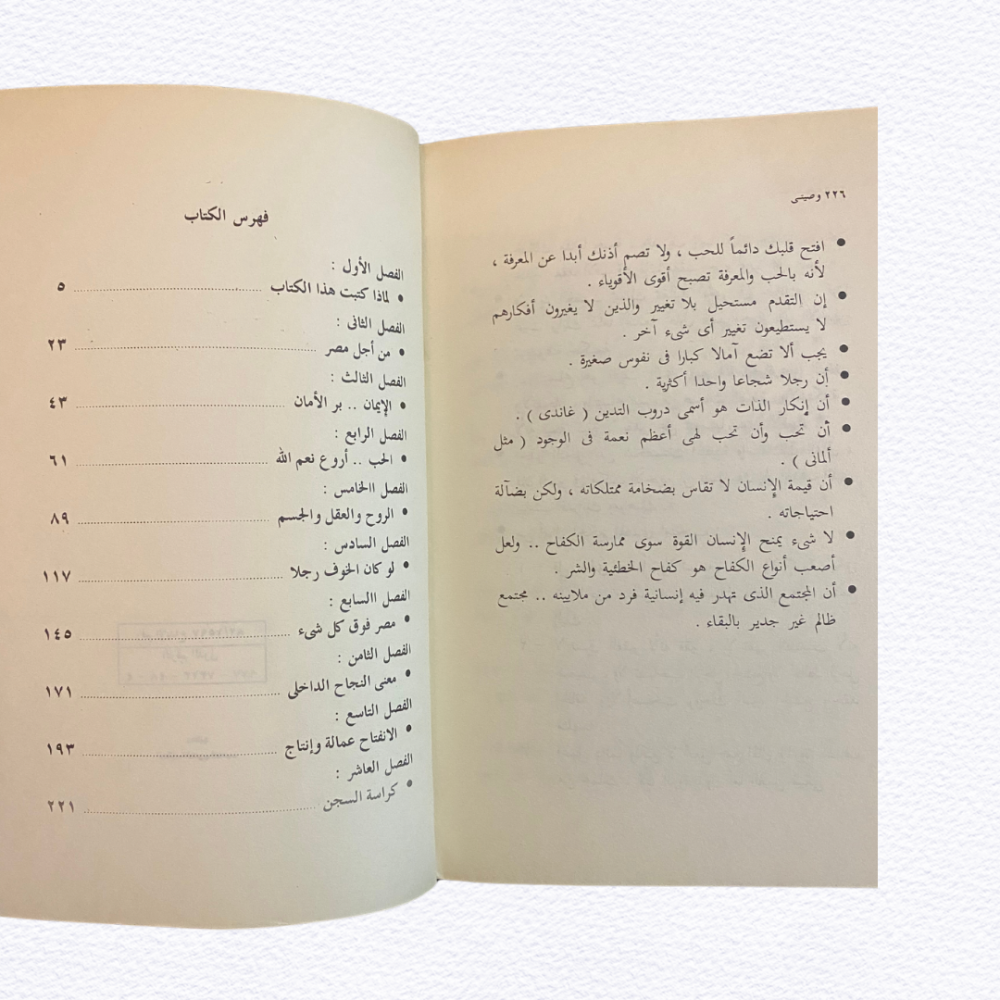 ٢٢٦ وصيتى
• افتح قلبك دائماً للحب ، ولا تصم أذنك أبدا عن المعرفة ،
لأنه بالحب والمعرفة تصبح أقوى الأقوياء .
• إن التقدم مستحيل بلا تغيير والذين لا يغيرون أفكارهم
لا يستطيعون تغيير أى شىء آخر .
• يجب ألا تضع آمالا كبارا فى نفوس صغيرة .
• إن رجلا شجاعا واحدا أكثرية .
• أن إنكار الذات هو أسمى دروب التدين ( غاندى ) .
• أن تحب وأن تحب لهى أعظم نعمة فى الوجود ( مثل
ألمانى ) .
• أن قيمة الإنسان لا تقاس بضخامة ممتلكاته ، ولكن بضآلة
احتياجاته .
• لا شىء يمنح الإنسان القوة سوى ممارسة الكفاح .. ولعل
أصعب أنواع الكفاح هو كفاح الخطئية والشر .
• أن المجتمع الذى تهدر فيه إنسانية فرد من ملايينه .. مجتمع
ظالم غير جدير بالبقاء .
فهرس الكتاب
الفصل الأول :
• لماذا كتبت هذا الكتاب ........ ٥
الفصل الثانى :
• من أجل مصر ........ ٢٣
الفصل الثالث :
• الإيمان .. بر الأمان ........ ٤٣
الفصل الرابع :
• الحب .. أروع نعم الله ........ ٦١
الفصل االخامس :
• الروح والعقل والجسم ........ ٨٩
الفصل السادس :
• لو كان الخوف رجلا ........ ١١٧
الفصل االسابع :
• مصر فوق كل شىء ........ ١٤٥
الفصل الثامن :
• معنى النجاح الداخلى ........ ١٧١
الفصل التاسع :
• الانفتاح عمالة وإنتاج ........ ١٩٣
الفصل العاشر :
• كراسة السجن ........ ٢٢١